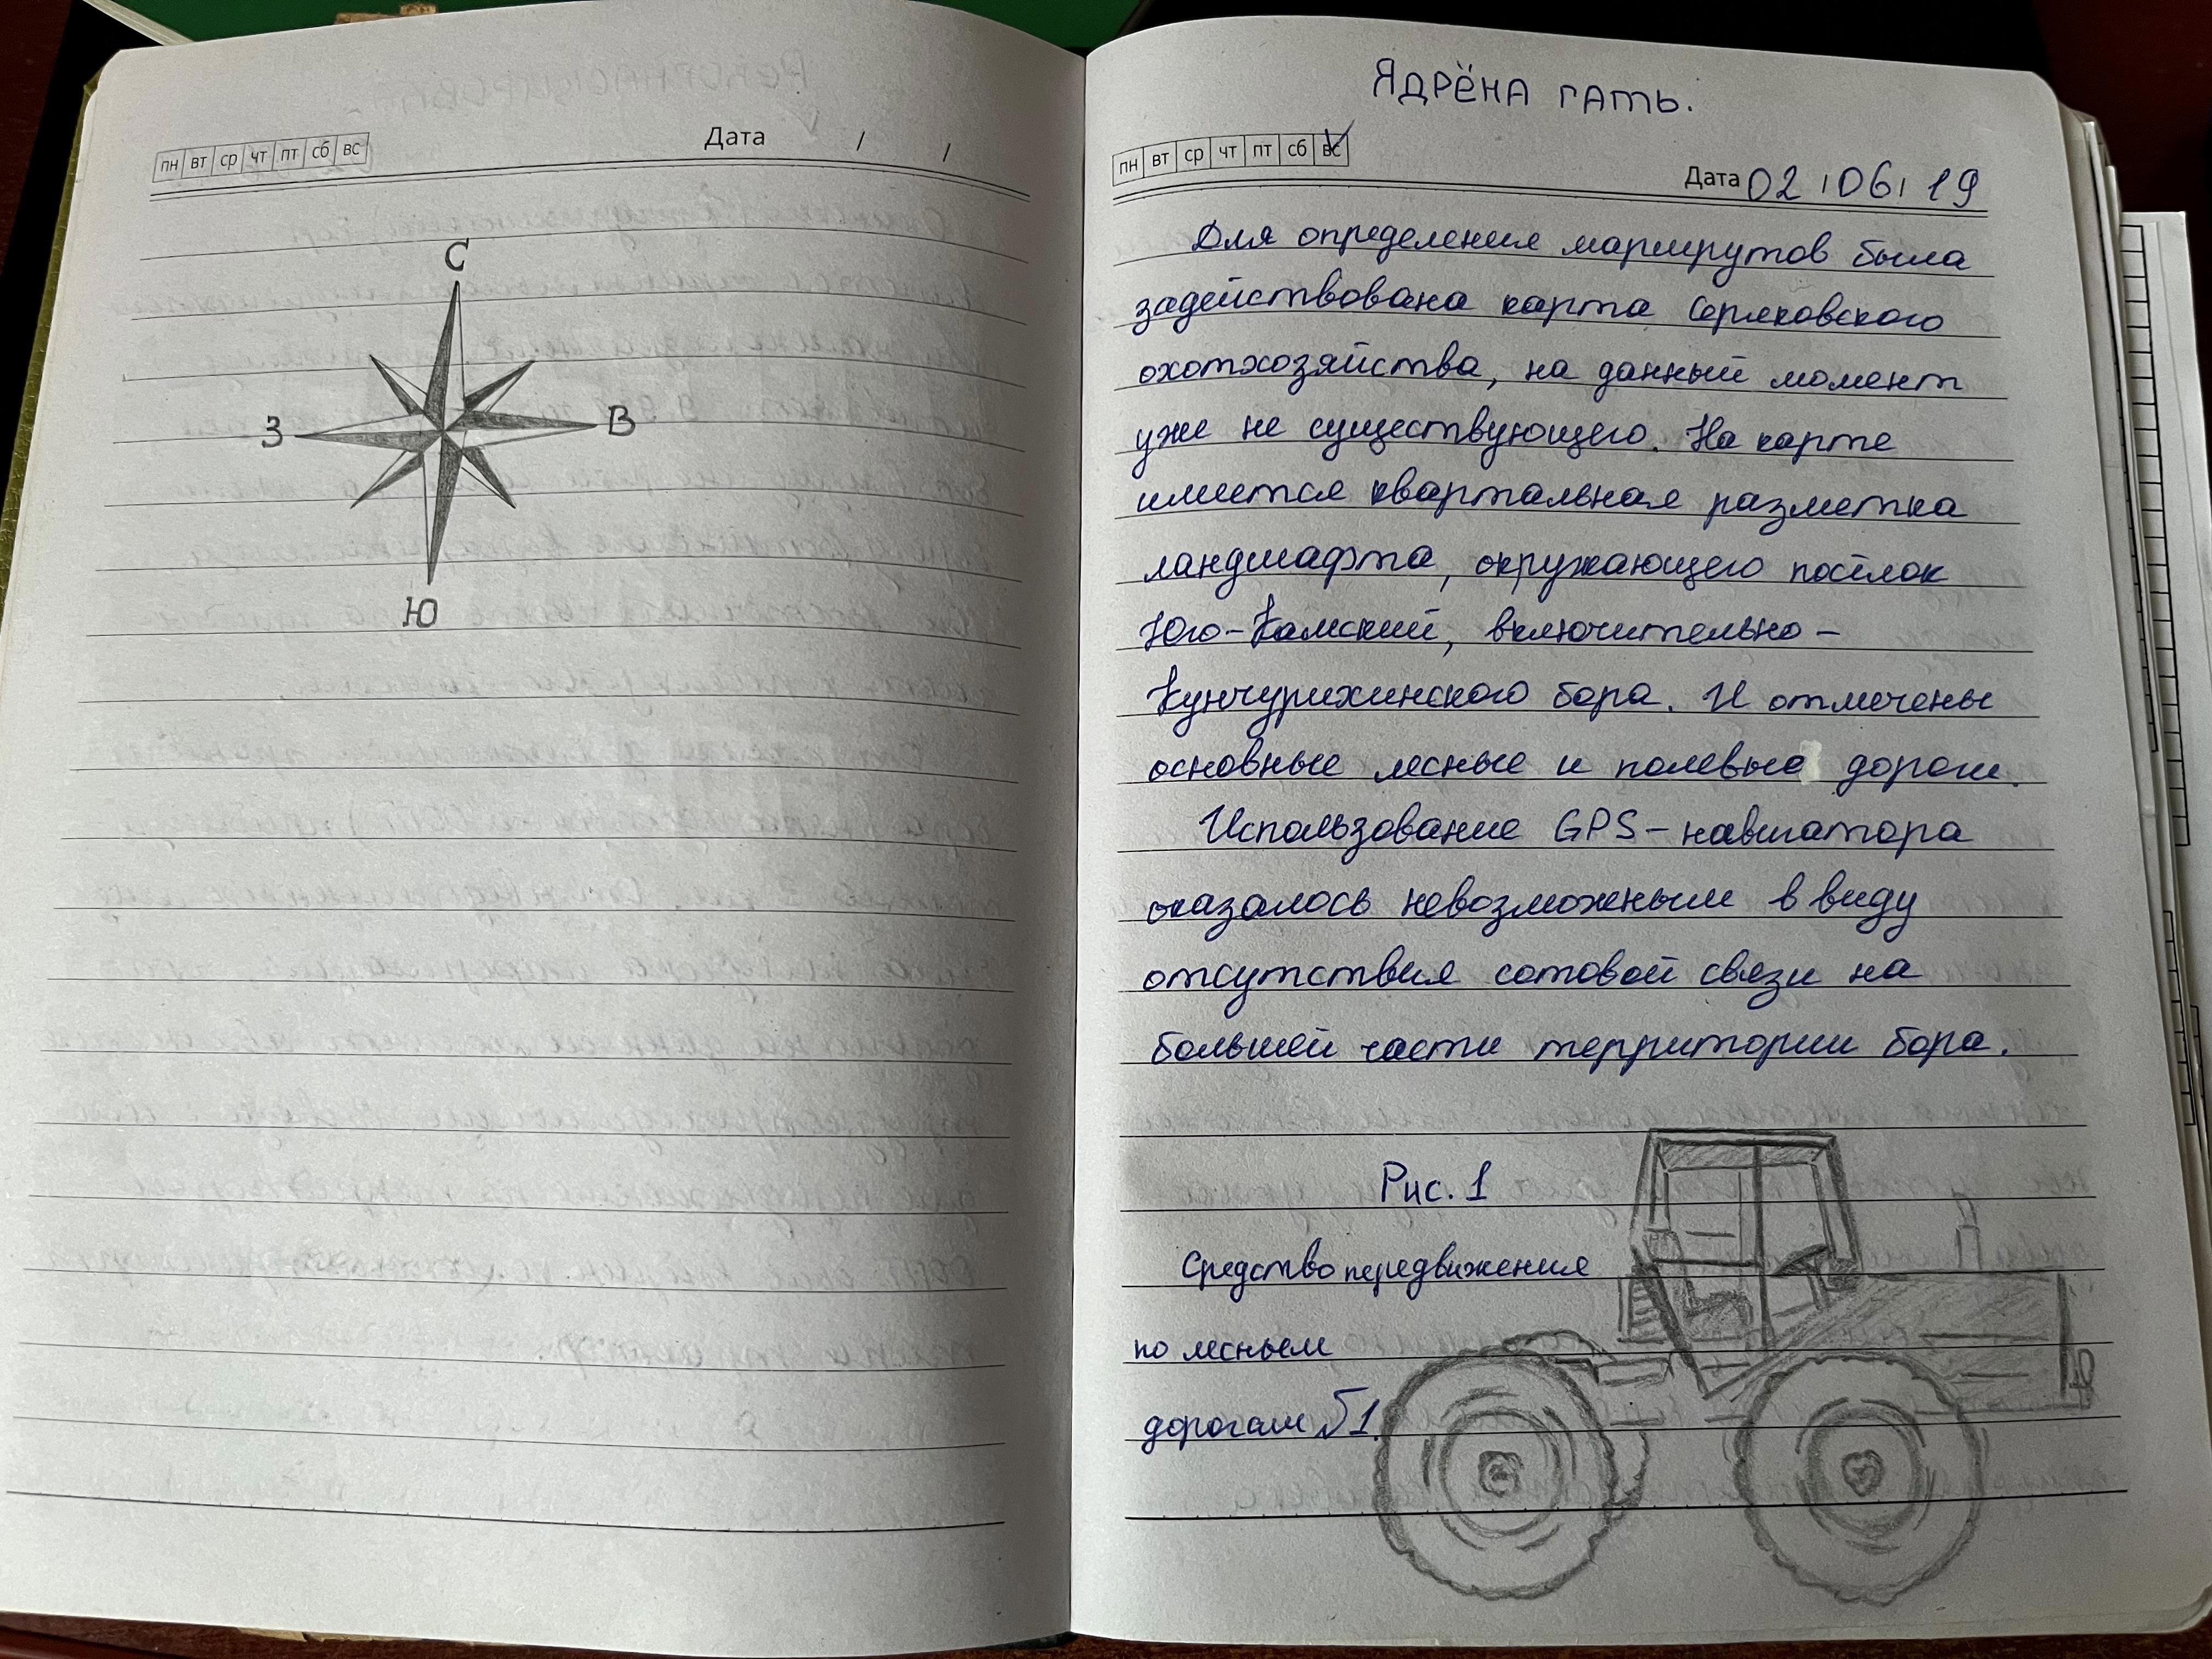 пн вт ср чт пт сб вс
Дата / /
С
З В
Ю
Ядрёна гать.
пн вт ср чт пт сб вс
Дата 02 / 06 / 19
Для определения маршрутов была
задействована карта Серяковского
охотхозяйства, на данный момент
уже не существующего. На карте
имеется квартальная разметка
ландшафта, окружающего посёлок
Юго-Камский, включительно -
Кунчурихинского бора. И отмечены
основные лесные и полевые дороги.
Использование GPS-навигатора
оказалось невозможным в виду
отсутствия сотовой связи на
большей части территории бора.
Рис. 1
Средство передвижения
по лесным
дорогам №1.